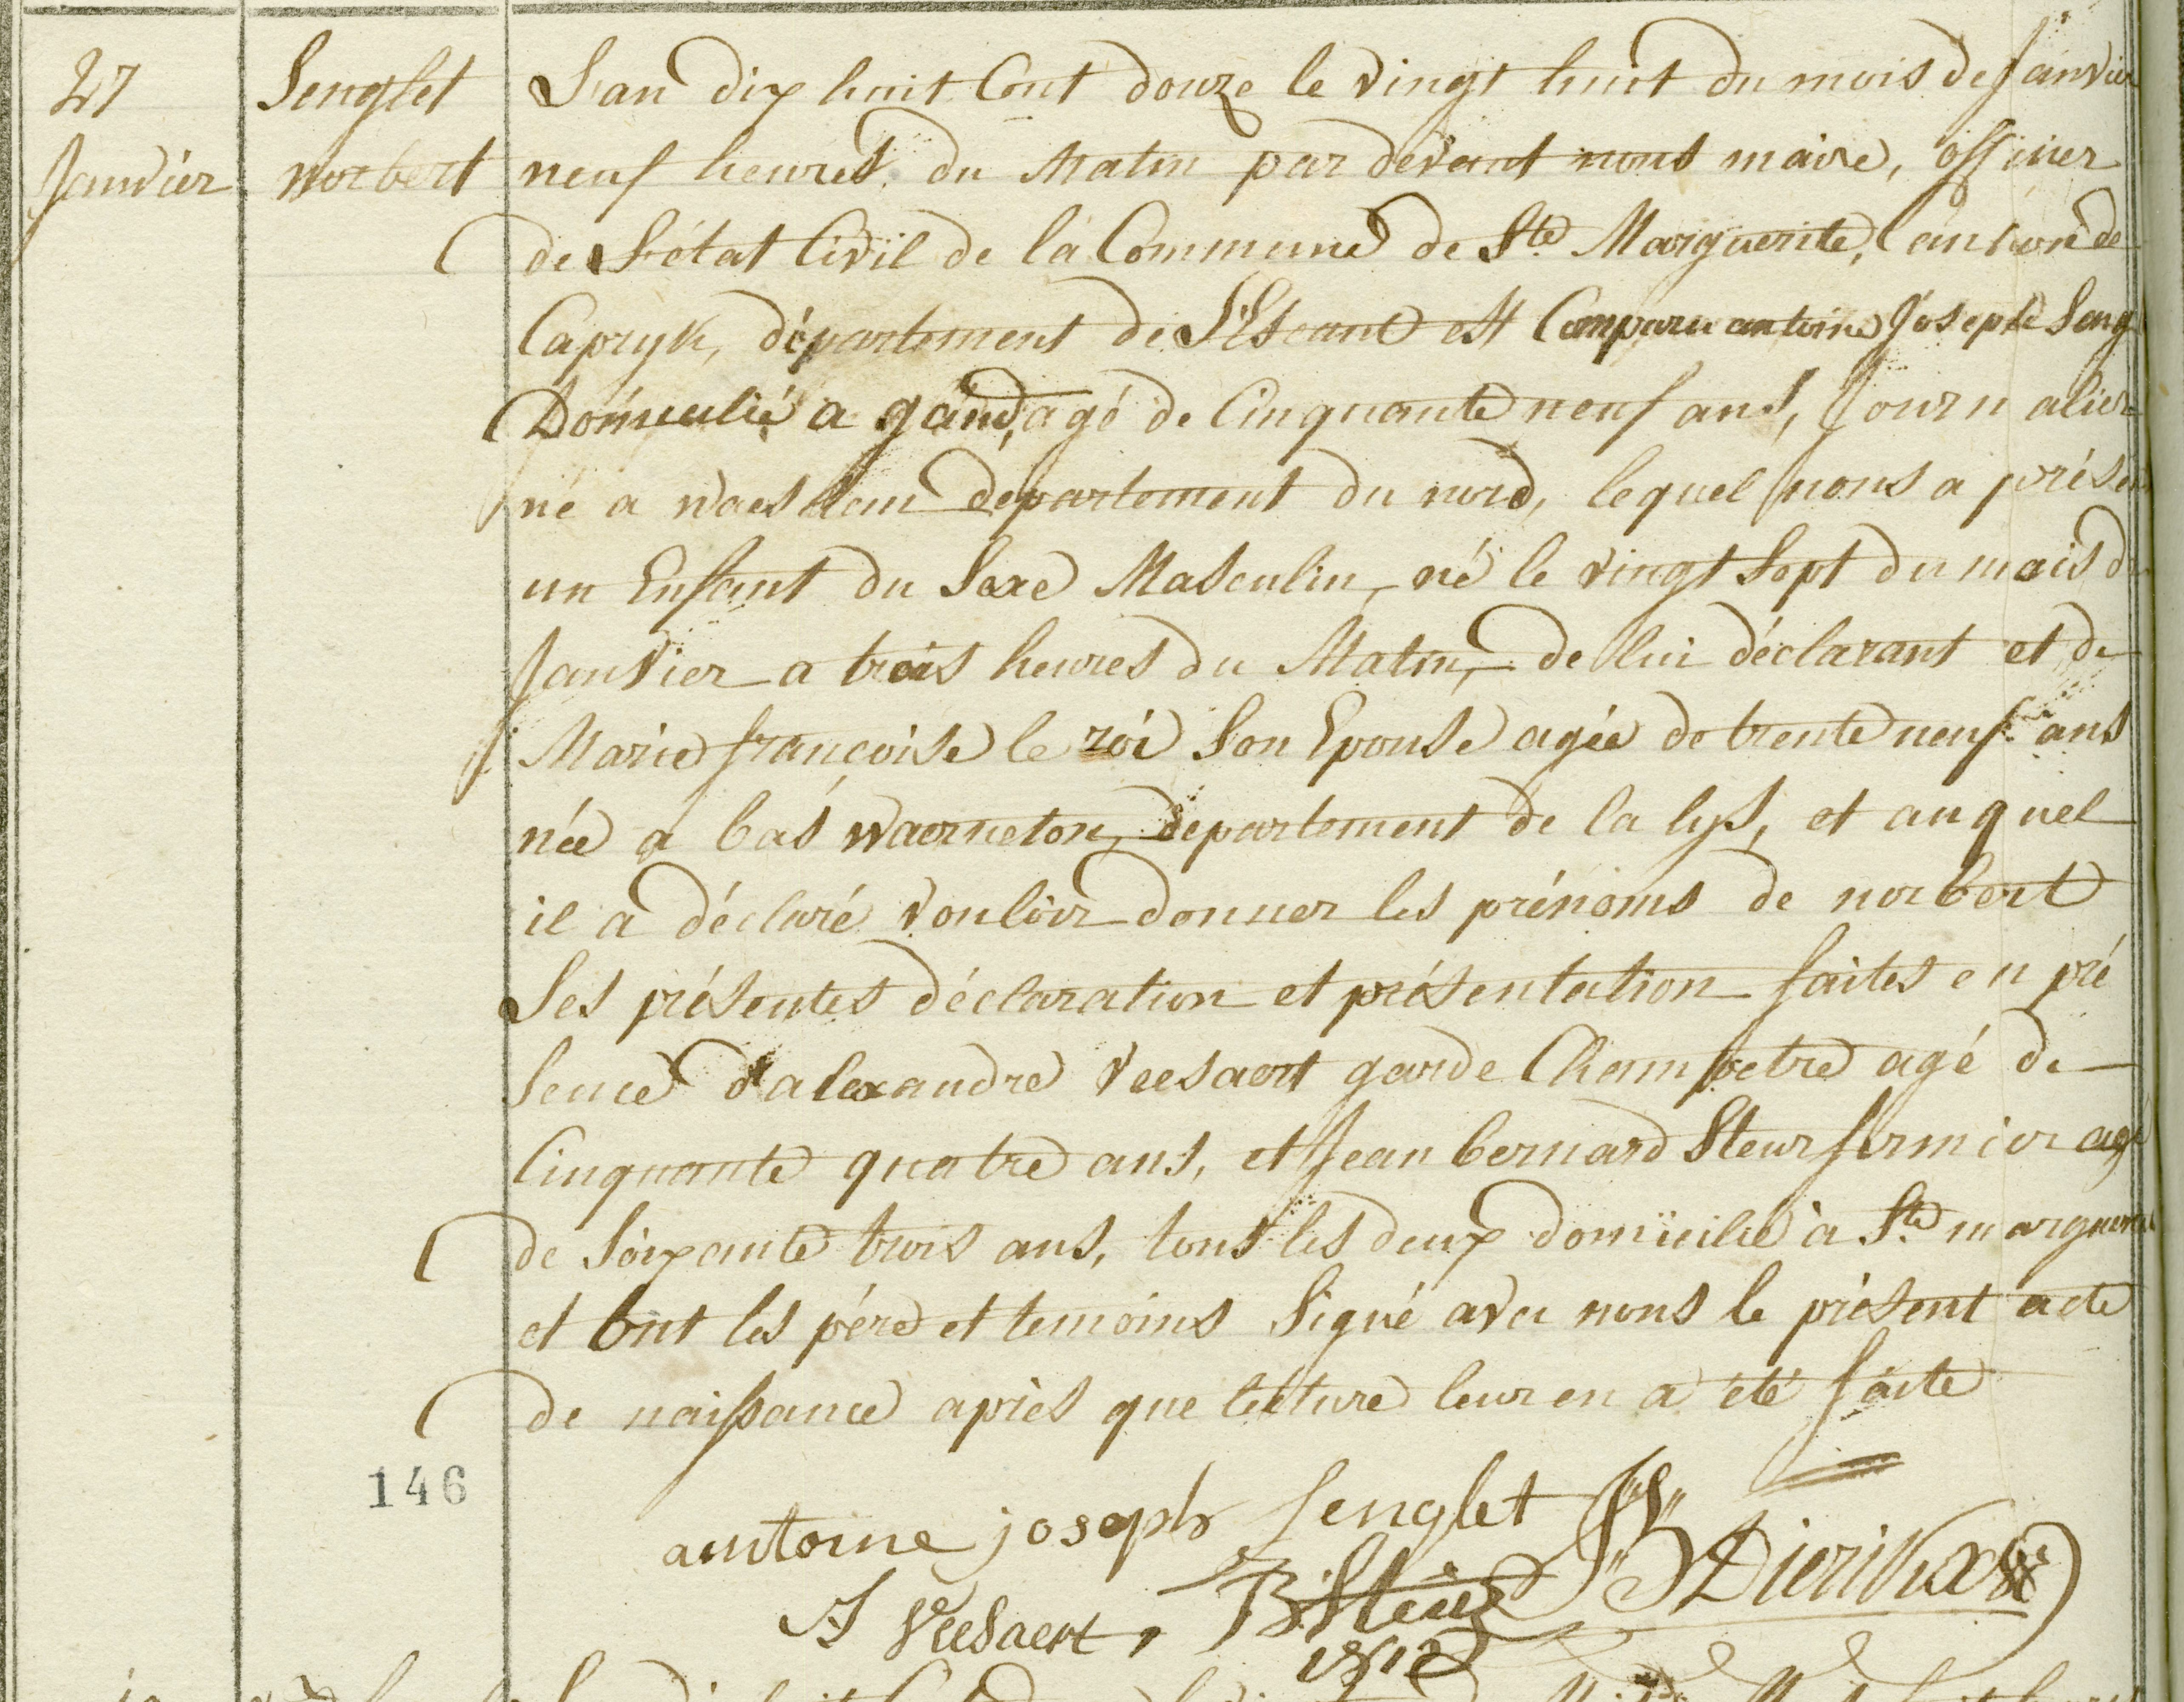 27
Janvier
Senglet
norbert
L'an dix huit Cent douze le vingt huit du mois de Janvier
neuf heures du Matin par devant nous maire, officier
de L'état Civil de la Commune de Ste Marguerite, Canton de
Capryk, département de L'Escaut est Comparu antoine Joseph Seng
Domicilié a gand, agé de Cinquante neuf ans, Journalier
né a département du nord, lequel nous a présen
un Enfant du Sexe Masculin, né le vingt Sept du mois d
Janvier a trois heures du Matin, de lui déclarant et de
Marie françoise le roi Son Epouse agée de trente neuf ans
née a bas waerneton, département de la lys, et auquel
il a déclaré vouloir donner les prénoms de norbert
Les présentes déclaration et présentation faites en pré
sence d'alexandre Veesaert garde Champetre agé de
Cinquante quatre ans, et Jean bernard Steur fermier agé
de Soixante trois ans, tous les deux domicilié à Ste marguerite
et ont les père et temoins Signé avec nous le présent acte
de naissance après que lecture leur en a été faite
146
antoine joseph Senglet
Dierikx
A Veesaert, B. Steur
1812